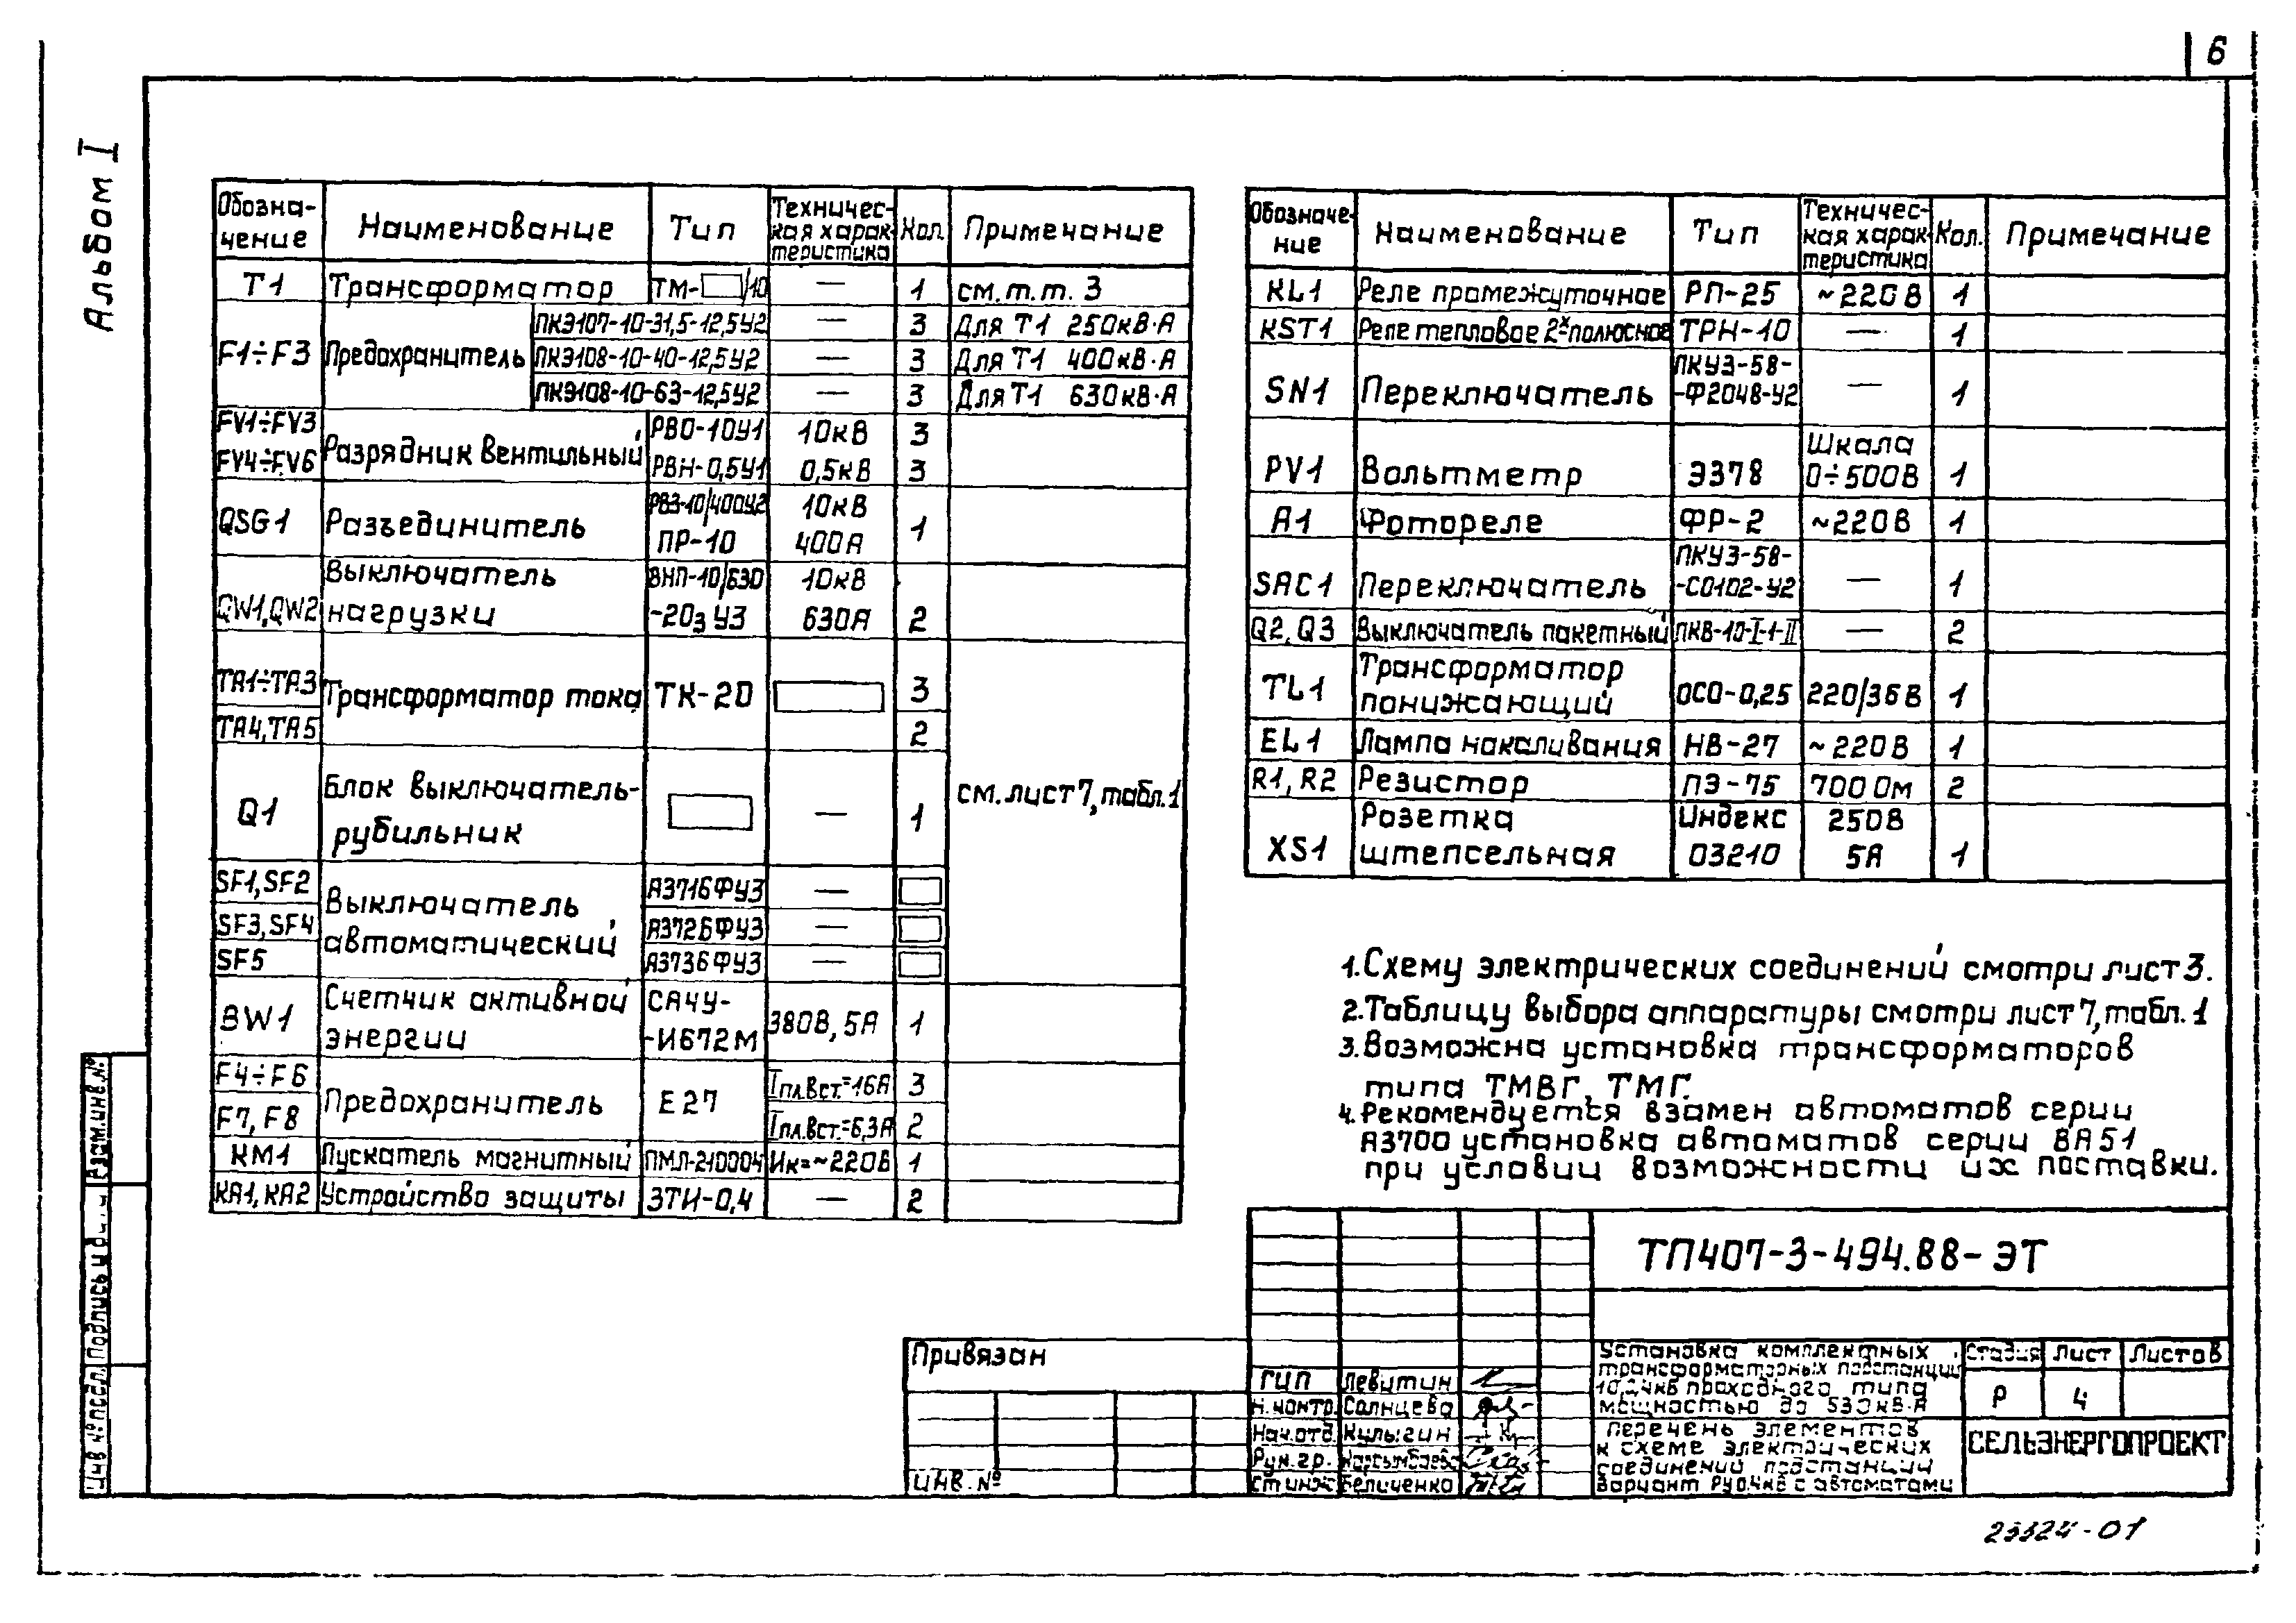 6
Альбом I
Обозна-
чение
Наименование
Тип
Техничес-
кая харак-
теристика
Кол.
Примечание
Т1 Трансформатор ТМ-   /10 — 1 см.т.т. 3
F1÷F3 Предохранитель
ПКЭ107-10-31,5-12,5У2 — 3 Для Т1 250кВ·А
ПКЭ108-10-40-12,5У2 — 3 Для Т1 400кВ·А
ПКЭ108-10-63-12,5У2 — 3 Для Т1 630кВ·А
FV1÷FV3 Разрядник вентильный РВО-10У1 10кВ 3
FV4÷FV6 РВН-0,5У1 0,5кВ 3
QSG1 Разъединитель РВЗ-10/400У2 10кВ
ПР-10 400А 1
Выключатель ВНП-10/630 10кВ
QW1,QW2 нагрузки -20з У3 630А 2
ТА1÷ТА3 Трансформатор тока ТК-20 3
ТА4,ТА5 2
Блок выключатель-
Q1 рубильник — 1 см.лист7,табл.1
SF1,SF2 Выключатель А3716ФУ3 —
SF3,SF4 автоматический А3726ФУ3 —
SF5 А3736ФУ3 —
Счетчик активной САЧУ-
BW1 энергии -И672М 380В, 5А 1
F4÷F6 Предохранитель Е27 Iпл.вст.=16А 3
F7, F8 Iпл.вст.=6,3А 2
КМ1 Пускатель магнитный ПМЛ-210004 Ик=~220В 1
КА1, КА2 Устройство защиты ЗТИ-0,4 — 2
Обозначе-
ние
Наименование
Тип
Техничес-
кая харак-
теристика
Кол.
Примечание
KL1 Реле промежуточное РП-25 ~220В 1
KST1 Реле тепловое 2х полюсное ТРН-10 — 1
ПКУ3-58-
SN1 Переключатель -Ф2048-У2 — 1
Шкала
PV1 Вольтметр Э378 0÷500В 1
А1 Фотореле ФР-2 ~220В 1
ПКУ3-58-
SAC1 Переключатель -С0102-У2 — 1
Q2, Q3 Выключатель пакетный ПКВ-10-I-1-II — 2
Трансформатор
TL1 понижающий ОСО-0,25 220/36В 1
EL1 Лампа накаливания НВ-27 ~220В 1
R1, R2 Резистор ПЭ-75 700 Ом 2
Розетка Индекс 250В
XS1 штепсельная 03210 5А 1
1.Схему электрических соединений смотри лист 3.
2.Таблицу выбора аппаратуры смотри лист 7, табл. 1
3.Возможна установка трансформаторов
типа ТМВГ, ТМГ.
4.Рекомендуется взамен автоматов серии
А3700 установка автоматов серии ВА51
при условии возможности их поставки.
ТП407-3-494.88-ЭТ
Привязан
ИНВ. №
ГИП Левитин
Н.контр. Солнцева
Нач.отд. Кулыгин
Рук.гр.
Ст инж Величенко
Установка комплектных
трансформаторных подстанций
10/0,4кВ проходного типа
мощностью до 630кВ·А
Стадия Лист Листов
Р 4
Перечень элементов
к схеме электрических
соединений подстанций
Вариант РУ0,4кВ с автоматами
СЕЛЬЭНЕРГОПРОЕКТ
Взам.инв.№
Подпись и д
Инв № подл.
23324-01